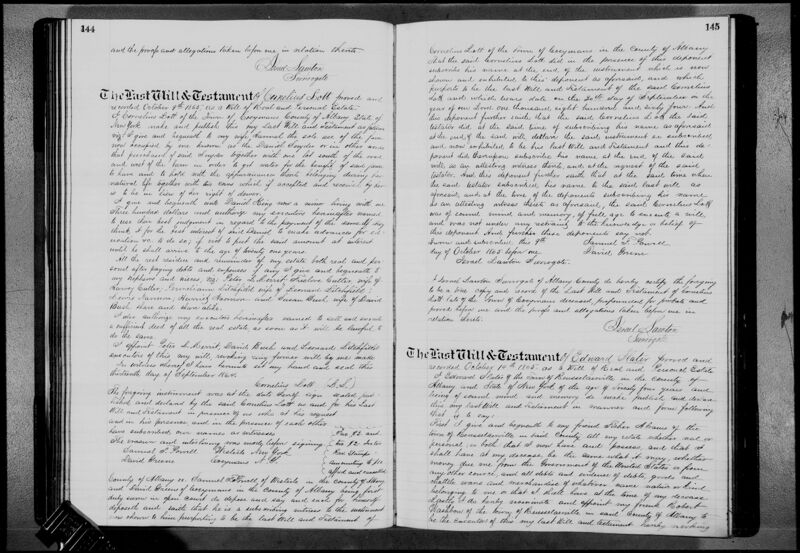 144
and the proofs and allegations taken before me in relation thereto
Israel Lawton
Surrogate
The Last Will & Testament of Cornelius Lott proved and
recorded October 9th 1865 as a Will of Real and Personal Estate
I Cornelius Lott of the Town of Coeymans County of Albany State of
New York make and publish this my last Will and Testament as follows
I give and bequeath to my wife Hannah the sole use of the farm
now occupied by me known as the Daniel Snyder or in other words
that purchased of said Snyder together with one lot south of the road
and west of the barn in order to get water for the benefit of said farm
to have and to hold with the appurtenances thereto belonging during her
natural life together with the cows which if accepted and received by her
is to be in lieu of her right of dower.
I give and bequeath unto Daniel King now a minor living with me
Three hundred dollars and authorize my executors hereinafter named
to use their best judgment in regard to the payment of the same if they
think it for the best interest of said Daniel to make advances for ed-
ucation &c. to do so, if not to put the said amount at interest
until he shall arrive to the age of twenty one years.
All the rest residue and remainder of my estate both real and per-
sonal after paying debts and expenses if any I give and bequeath to
my nephews and nieces, viz: Peter L. Merrit, wife of
Harvey wife of Leonard Litchfield
and Susan Bush wife of David
Bush share and share alike.
I also authorize my executors hereinafter named to sell and execute
a sufficient deed of all the real estate as soon as it will be lawful to
do the same
I appoint Peter L. Merrit, David Bush and Leonard Litchfield
executors of this my will, revoking any former will by me made
In witness whereof I have hereunto set my hand and seal this
day of September 1864.
Cornelius Lott (L.S.)
The foregoing instrument was at the date thereof sign sealed pub-
lished and declared by the said Cornelius Lott as and for his Last
Will and Testament in presence of us who at his request
and in his presence and in the presence of each other
have subscribed our names as witnesses
The erasure and interlining was made before signing
Samuel S. Powell New York
David Greene Coeymans N.Y.
County of Albany ss. Samuel S. Powell of in the county of Albany
and David Greene of Coeymans in the County of Albany being first
duly sworn in open Court do depose and say and each for himself
deposeth and saith that he is a subscribing witness to the instrument
now shown to him purporting to be the last Will and Testament of
145
Cornelius Lott of the Town of Coeymans in the County of Albany
that the said Cornelius Lott did in the presence of this deponent
subscribe his name at the end of the instrument which is now
shown and exhibited to this deponent as aforesaid, and which
purports to be the last Will and Testament of the said Cornelius
Lott and which bears date on the day of September in the
year of our Lord one thousand eight hundred and sixty four. And
this deponent further saith that the said Cornelius Lott the said
testator did, at the same time of subscribing his name as aforesaid
at the end of the said will, declare the said instrument so subscribed
and now exhibited, to be his last Will and Testament and this de-
ponent did thereupon subscribe his name at the end of the said
will, as an attesting witness thereto, and at the request of the said
testator. And this deponent further saith that at the said time when
the said testator subscribed his name to the said last will as
aforesaid, and at the time of the deponents subscribing his name
as an attesting witness thereto as aforesaid, the said Cornelius Lott
was of sound mind and memory, of full age to execute a will
and was not under any restraint, to the knowledge or belief of
this deponent And further these deponents say not.
Sworn and subscribed, this 9th Samuel S. Powell
day of October 1865 before me David Greene
Israel Lawton Surrogate.
I Israel Lawton Surrogate of Albany County do hereby certify the foregoing
to be a true copy and record of the Last Will and Testament of Cornelius
Lott late of the Town of Coeymans deceased, propounded for probate and
proved before me and the proofs and allegations taken before me in
relation thereto.
Israel Lawton
Surrogate
The Last Will & Testament of Edward Slater proved and
recorded October 10th 1865 as a Will of Real and Personal Estate
I Edward Slater of the Town of Rensselaerville in the County of
Albany and State of New York of the age of seventy four years and
being of sound mind and memory do make publish and declare
this my last Will and Testament in manner and form following
that is to say:
First I give and bequeath to my friend Adams of the
town of Rensselaerville in said County all my estate whether real or
personal or both that I now have and possess, and that I
shall have at my decease be the same what it may, whether
money due me from the Government of the United States or from
any other source, and all debts and evidences of debts, goods and
chattels wares and merchandise of whatever name nature or kind
belonging to me or that I shall have at the time of my decease
Lastly I do hereby nominate and appoint my friend Robert
Washbow of the Town of Rensselaerville in said County of Albany to
be the executor of this my last Will and testament hereby revoking